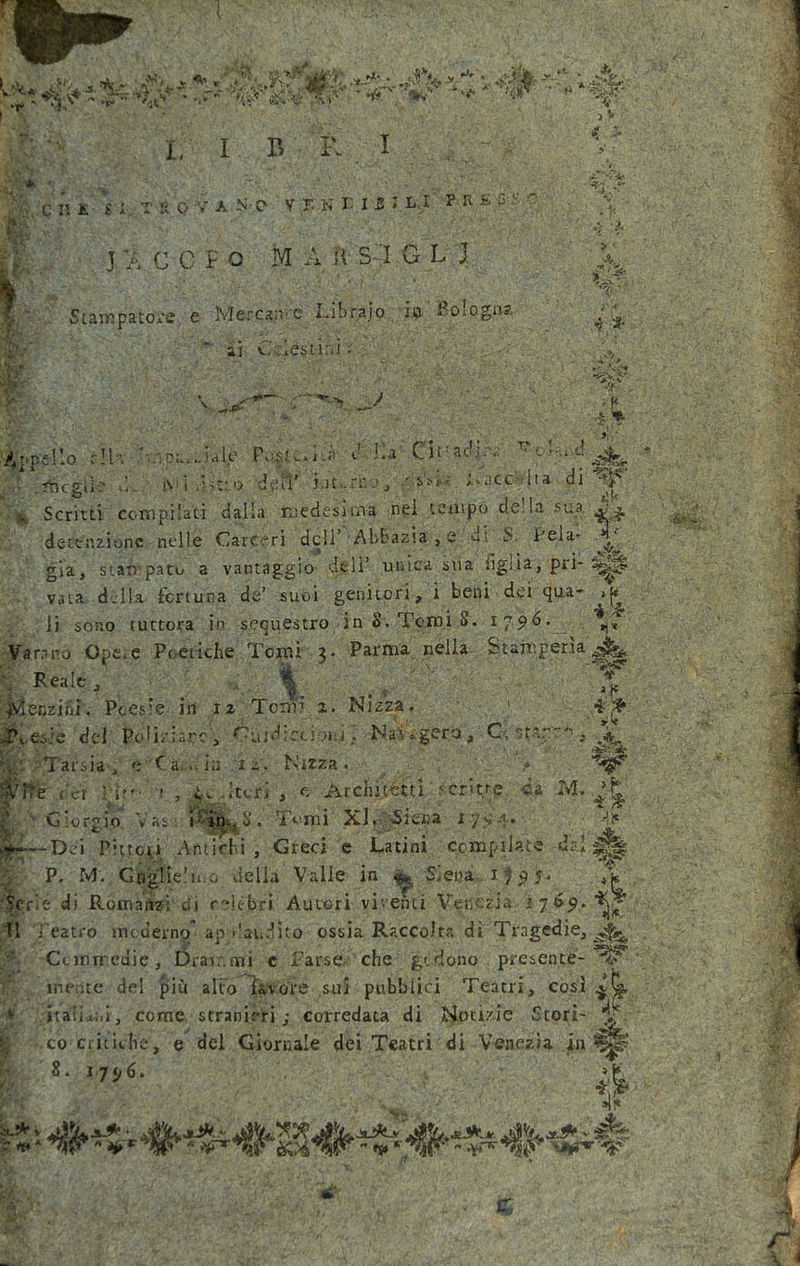 LIBRI
CHE SI TROVANO VENDIBILI PRESSO
JACOPO MARSIGLJ
Stampatore e Mercante Librajo in Bologna
ai Celestini.
Appello all' Posterità Cittadina
Scritti compilati dalla medesima nel tempo della sua
detenzione nelle Carceri dell' Abbazia, e di S. Pela-
gia, stampato a vantaggio dell' unica sua figlia, pri-
vata della fortuna de' suoi genitori, i beni dei qua-
li sono tuttora in sequestro in 8. Tomi 8. 1796.
Varano Opere Poetiche Tomi 3. Parma nella Stamperia
Reale,
Menzini. Poesie in 12 Tomi 2. Nizza.
Poesie del Poliziano, Guidiccioni, Navagero, Costanzo,
Tarsia, e in 12. Nizza.
Vite dei Pittori, Scultori, e Architetti scritte da M.
Giorgio Vas in 8. Tomi XI. Siena
——Dei Pittori Antichi, Greci e Latini compilate dal
P. M. Guglielmo della Valle in Siena 1795.
Serie di Romanzi di celebri Autori viventi Venezia 1769.
Il Teatro moderno applaudito ossia Raccolta di Tragedie,
Commedie, Drammi e Farse che godono presente-
mente del più alto favore sui pubblici Teatri, così
italiani, come stranieri; corredata di Notizie Stori-
co critiche, e del Giornale dei Teatri di Venezia in
8. 1796.